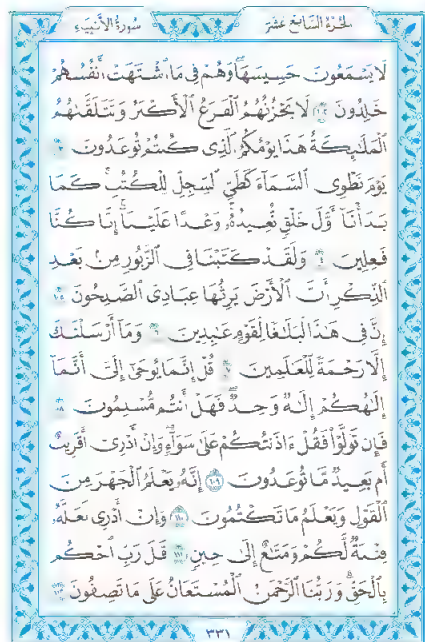 الجزء السابع عشر
سورة الأنبياء
لَا يَسْمَعُونَ حَسِيسَهَا وَهُمْ فِي مَا ٱشْتَهَتْ أَنفُسُهُمْ
خَٰلِدُونَ ١٠٢ لَا يَحْزُنُهُمُ ٱلْفَزَعُ ٱلْأَكْبَرُ وَتَتَلَقَّىٰهُمُ
ٱلْمَلَٰٓئِكَةُ هَٰذَا يَوْمُكُمُ ٱلَّذِي كُنتُمْ تُوعَدُونَ
يَوْمَ نَطْوِي ٱلسَّمَآءَ كَطَيِّ ٱلسِّجِلِّ لِلْكُتُبِ كَمَا
بَدَأْنَآ أَوَّلَ خَلْقٍ نُّعِيدُهُۥ وَعْدًا عَلَيْنَآ إِنَّا كُنَّا
فَٰعِلِينَ وَلَقَدْ كَتَبْنَا فِي ٱلزَّبُورِ مِنۢ بَعْدِ
ٱلذِّكْرِ أَنَّ ٱلْأَرْضَ يَرِثُهَا عِبَادِيَ ٱلصَّٰلِحُونَ ١٠٥
إِنَّ فِي هَٰذَا لَبَلَٰغًا لِّقَوْمٍ عَٰبِدِينَ وَمَآ أَرْسَلْنَٰكَ
إِلَّا رَحْمَةً لِّلْعَٰلَمِينَ قُلْ إِنَّمَا يُوحَىٰٓ إِلَيَّ أَنَّمَآ
إِلَٰهُكُمْ إِلَٰهٌ وَٰحِدٌ فَهَلْ أَنتُم مُّسْلِمُونَ
فَإِن تَوَلَّوْا۟ فَقُلْ ءَاذَنتُكُمْ عَلَىٰ سَوَآءٍ وَإِنْ أَدْرِيٓ أَقَرِيبٌ
أَم بَعِيدٌ مَّا تُوعَدُونَ ١٠٩ إِنَّهُۥ يَعْلَمُ ٱلْجَهْرَ مِنَ
ٱلْقَوْلِ وَيَعْلَمُ مَا تَكْتُمُونَ ١١٠ وَإِنْ أَدْرِي لَعَلَّهُۥ
فِتْنَةٌ لَّكُمْ وَمَتَٰعٌ إِلَىٰ حِينٍ ١١١ قَٰلَ رَبِّ ٱحْكُم
بِٱلْحَقِّ وَرَبُّنَا ٱلرَّحْمَٰنُ ٱلْمُسْتَعَانُ عَلَىٰ مَا تَصِفُونَ ١١٢
٣٣١